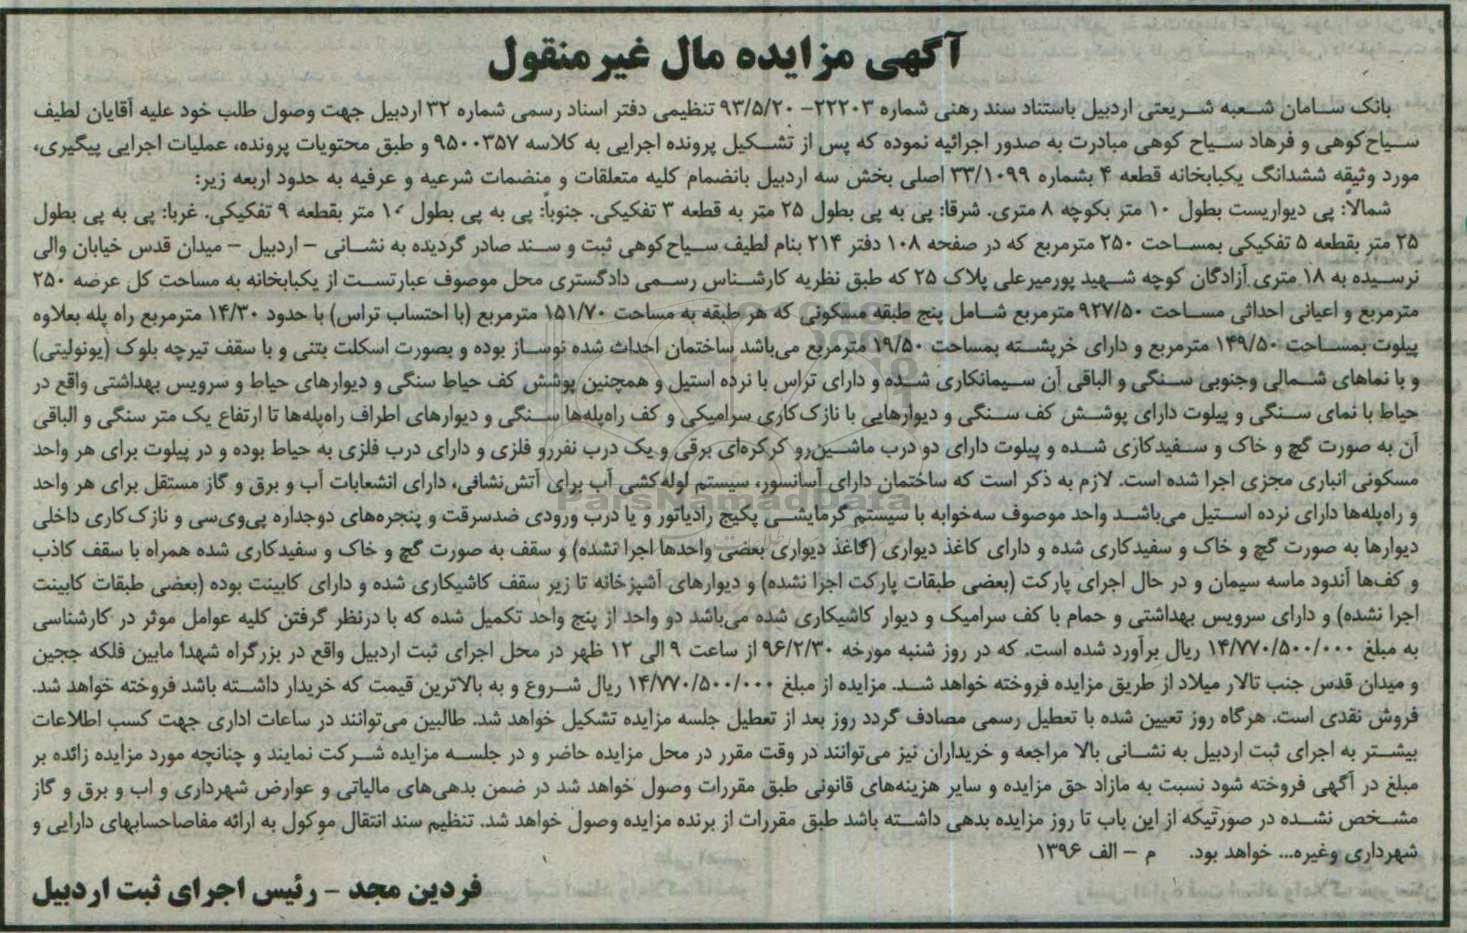 آگهی مزایده مال غیرمنقول
بانک سامان شعبه شریعتی اردبیل باستناد سند رهنی شماره ۲۲۲۰۳- ۹۳/۵/۲۰ تنظیمی دفتر اسناد رسمی شماره ۳۲ اردبیل جهت وصول طلب خود علیه آقایان لطیف
سیاح‌کوهی و فرهاد سیاح کوهی مبادرت به صدور اجرائیه نموده که پس از تشکیل پرونده اجرایی به کلاسه ۹۵۰۰۳۵۷ و طبق محتویات پرونده، عملیات اجرایی پیگیری،
مورد وثیقه ششدانگ یکبابخانه قطعه ۴ بشماره ۳۳/۱۰۹۹ اصلی بخش سه اردبیل بانضمام کلیه متعلقات و منضمات شرعیه و عرفیه به حدود اربعه زیر:
شمالاً: پی دیواریست بطول ۱۰ متر بکوچه ۸ متری. شرقا: پی به پی بطول ۲۵ متر به قطعه ۳ تفکیکی. جنوباً: پی به پی بطول ۱۰ متر بقطعه ۹ تفکیکی. غربا: پی به پی بطول
۲۵ متر بقطعه ۵ تفکیکی بمساحت ۲۵۰ مترمربع که در صفحه ۱۰۸ دفتر ۲۱۴ بنام لطیف سیاح‌کوهی ثبت و سند صادر گردیده به نشانی – اردبیل – میدان قدس خیابان والی
نرسیده به ۱۸ متری آزادگان کوچه شهید پورمیرعلی پلاک ۲۵ که طبق نظریه کارشناس رسمی دادگستری محل موصوف عبارتست از یکبابخانه به مساحت کل عرصه ۲۵۰
مترمربع و اعیانی احداثی مساحت ۹۲۷/۵۰ مترمربع شامل پنج طبقه مسکونی که هر طبقه به مساحت ۱۵۱/۷۰ مترمربع (با احتساب تراس) با حدود ۱۴/۳۰ مترمربع راه پله بعلاوه
پیلوت بمساحت ۱۴۹/۵۰ مترمربع و دارای خرپشته بمساحت ۱۹/۵۰ مترمربع می‌باشد ساختمان احداث شده نوساز بوده و بصورت اسکلت بتنی و با سقف تیرچه بلوک (یونولیتی)
و با نماهای شمالی وجنوبی سنگی و الباقی آن سیمانکاری شده و دارای تراس با نرده استیل و همچنین پوشش کف حیاط سنگی و دیوارهای حیاط و سرویس بهداشتی واقع در
حیاط با نمای سنگی و پیلوت دارای پوشش کف سنگی و دیوارهایی با نازک‌کاری سرامیکی و کف راه‌پله‌ها سنگی و دیوارهای اطراف راه‌پله‌ها تا ارتفاع یک متر سنگی و الباقی
آن به صورت گچ و خاک و سفیدکاری شده و پیلوت دارای دو درب ماشین‌رو کرکره‌ای برقی و یک درب نفررو فلزی و دارای درب فلزی به حیاط بوده و در پیلوت برای هر واحد
مسکونی انباری مجزی اجرا شده است. لازم به ذکر است که ساختمان دارای آسانسور، سیستم لوله‌کشی آب برای آتش‌نشانی، دارای انشعابات آب و برق و گاز مستقل برای هر واحد
و راه‌پله‌ها دارای نرده استیل می‌باشد واحد موصوف سه‌خوابه با سیستم گرمایشی پکیج رادیاتور و یا درب ورودی ضدسرقت و پنجره‌های دوجداره پی‌وی‌سی و نازک‌کاری داخلی
دیوارها به صورت گچ و خاک و سفیدکاری شده و دارای کاغذ دیواری (کاغذ دیواری بعضی واحدها اجرا نشده) و سقف به صورت گچ و خاک و سفیدکاری شده همراه با سقف کاذب
و کف‌ها آندود ماسه سیمان و در حال اجرای پارکت (بعضی طبقات پارکت اجرا نشده) و دیوارهای آشپزخانه تا زیر سقف کاشیکاری شده و دارای کابینت بوده (بعضی طبقات کابینت
اجرا نشده) و دارای سرویس بهداشتی و حمام با کف سرامیک و دیوار کاشیکاری شده می‌باشد دو واحد از پنج واحد تکمیل شده که با درنظر گرفتن کلیه عوامل موثر در کارشناسی
به مبلغ ۱۴/۷۷۰/۵۰۰/۰۰۰ ریال برآورد شده است. که در روز شنبه مورخه ۹۶/۲/۳۰ از ساعت ۹ الی ۱۲ ظهر در محل اجرای ثبت اردبیل واقع در بزرگراه شهدا مابین فلکه ججین
و میدان قدس جنب تالار میلاد از طریق مزایده فروخته خواهد شد. مزایده از مبلغ ۱۴/۷۷۰/۵۰۰/۰۰۰ ریال شروع و به بالاترین قیمت که خریدار داشته باشد فروخته خواهد شد.
فروش نقدی است. هرگاه روز تعیین شده با تعطیل رسمی مصادف گردد روز بعد از تعطیل جلسه مزایده تشکیل خواهد شد. طالبین می‌توانند در ساعات اداری جهت کسب اطلاعات
بیشتر به اجرای ثبت اردبیل به نشانی بالا مراجعه و خریداران نیز می‌توانند در وقت مقرر در محل مزایده حاضر و در جلسه مزایده شرکت نمایند و چنانچه مورد مزایده زائده بر
مبلغ در آگهی فروخته شود نسبت به مازاد حق مزایده و سایر هزینه‌های قانونی طبق مقررات وصول خواهد شد در ضمن بدهی‌های مالیاتی و عوارض شهرداری و اب و برق و گاز
مشخص نشده در صورتیکه از این باب تا روز مزایده بدهی داشته باشد طبق مقررات از برنده مزایده وصول خواهد شد. تنظیم سند انتقال موکول به ارائه مفاصاحسابهای دارایی و
شهرداری وغیره... خواهد بود. م – الف ۱۳۹۶
فردین مجد – رئیس اجرای ثبت اردبیل
ParsNamadData